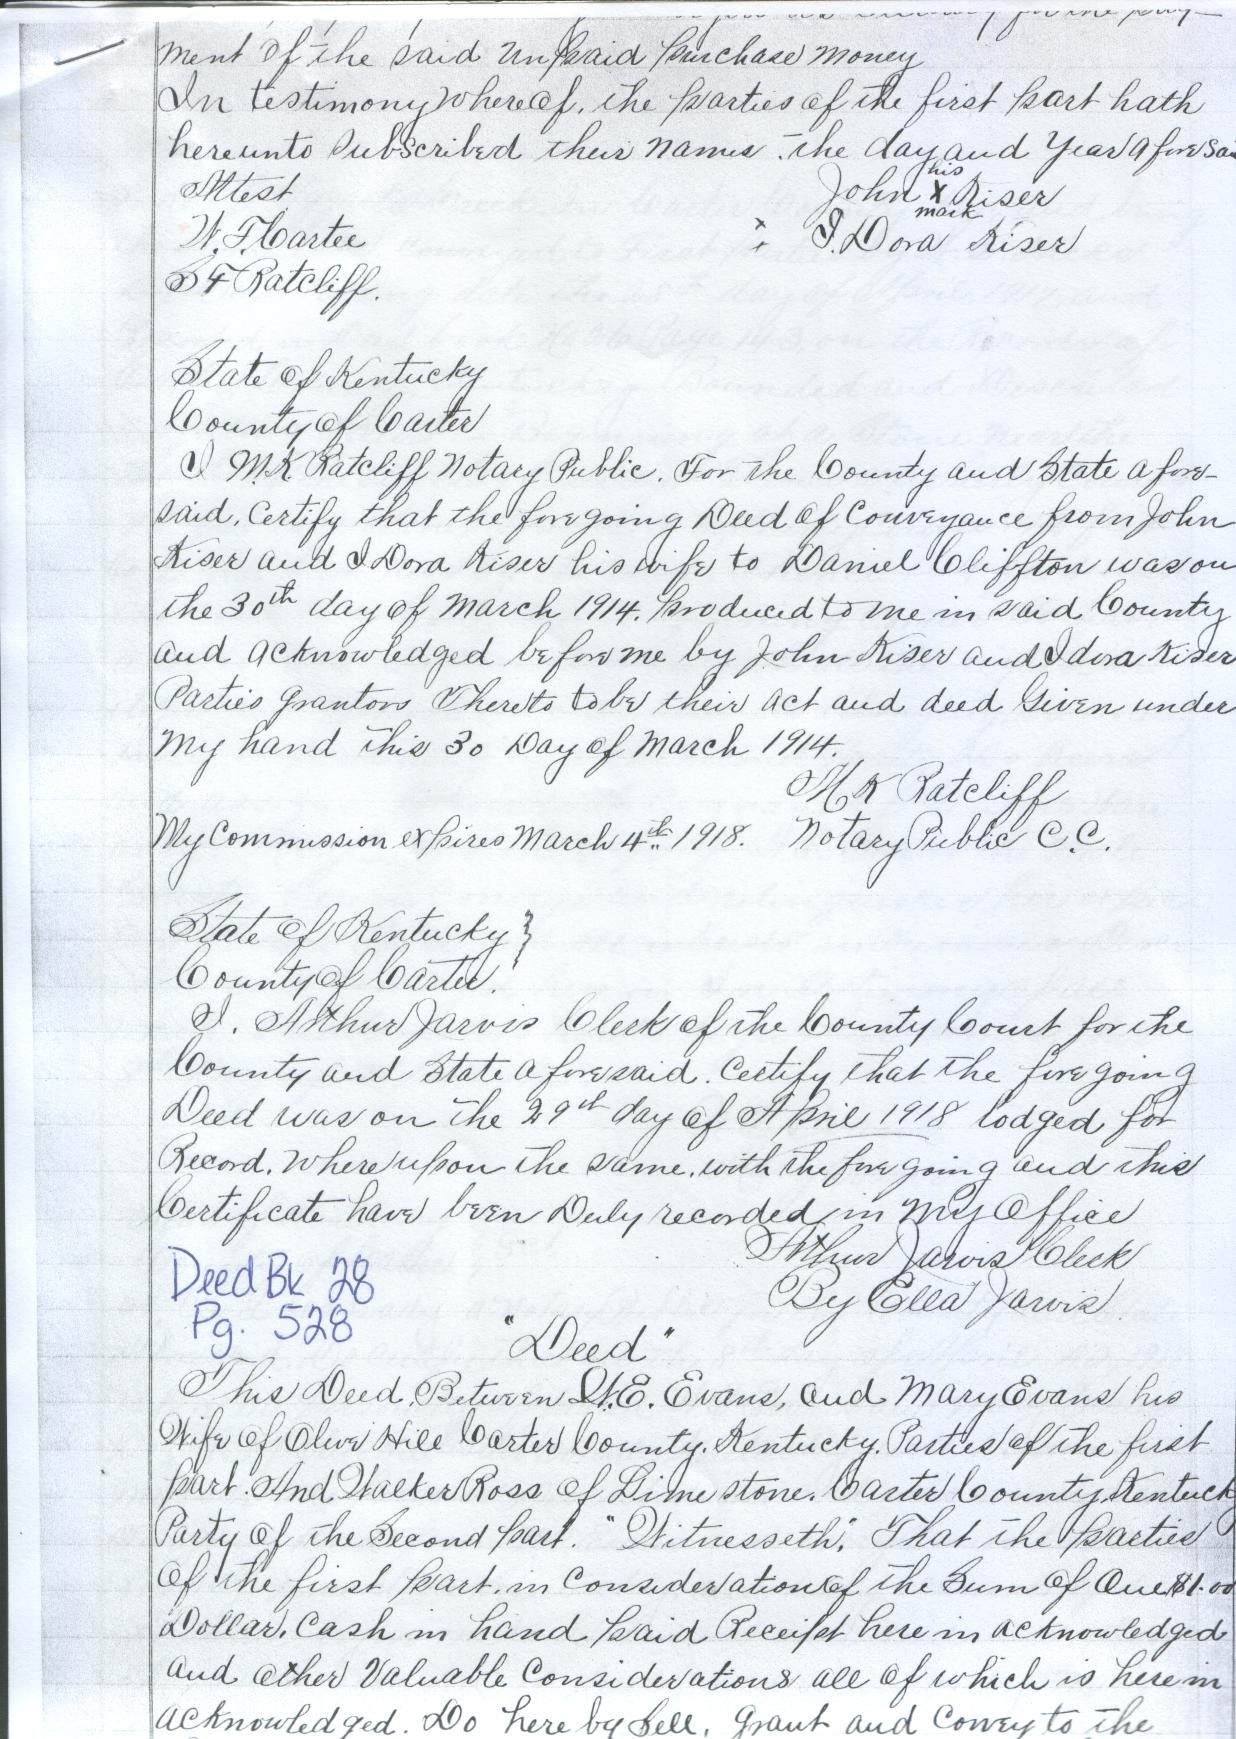 for the pay-
ment of the said unpaid purchase money
In testimony whereof, the parties of the first part hath
hereunto subscribed their names. the day and Year afore sai
Attest
his
John X Kiser
mark
W. T. Cartee
I. Dora Kiser
S F Ratcliff.
State of Kentucky
County of Carter
I M.K Ratcliff Notary Public. For the County and State afore-
said, Certify that the foregoing Deed of Conveyance from John
Kiser and I Dora Kiser his wife to Daniel Cliffton was on
the 30th day of March 1914. produced to me in said County
and acknowledged before me by John Kiser and Idora Kiser
Parties grantors Thereto to be their act and deed Given under
My hand this 30 Day of March 1914.
M K Ratcliff
My Commission expires March 4th 1918. Notary Public C.C.
State of Kentucky }
County of Carter.
I. Arthur Jarvis Clerk of the County Court for the
County and State aforesaid. Certify that the foregoing
Deed was on the 29th day of April 1918 lodged for
Record. Whereupon the same. with the foregoing and this
Certificate have been Duly recorded in My Office
Arthur Jarvis Clerk
By Ella Jarvis
Deed Bk 28
Pg. 528
"Deed"
This Deed, Between W.E. Evans, and Mary Evans his
Wife of Olive Hill Carter County. Kentucky. Parties of the first
part. And Walker Ross of Lime stone. Carter County, Kentucky
Party of the Second part. "Witnesseth". That the parties
of the first part, in Consideration of the Sum of One $1.00
Dollar. Cash in hand paid Receipt here in acknowledged
and other Valuable Considerations all of which is here in
acknowledged. Do here by Sell, grant and Convey to the